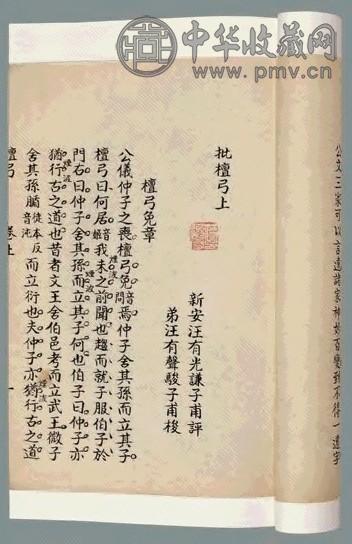 中华收藏网
www.pmv.cn
公文三家可以言遠諸家神妙百變到不得一遠字
批檀弓上
新安汪有光謙子甫評
弟汪有聲駿子甫梭
檀弓免章
公儀仲子之喪檀弓免音問焉仲子舍其孫而立其子
檀弓曰何居音姬我未之前聞也趨而就子服伯子於
門右曰仲子舍其孫而立其子何也伯子曰仲子亦
猶行古之道也昔者文王舍伯邑考而立武王微子
舍其孫腯徒本反音沌而立衍也夫仲子亦猶行古之道
檀弓 卷上 一